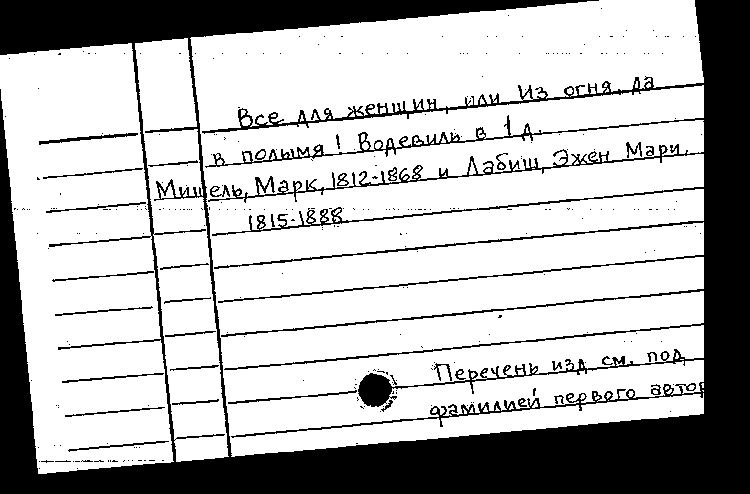 Все для женщин, или Из огня, да
в полымя! Водевиль в 1 д.
Мишель, Марк, 1812-1868 и Лабиш, Эжен Мари,
1815-1888
Перечень изд см. под
фамилией первого автор